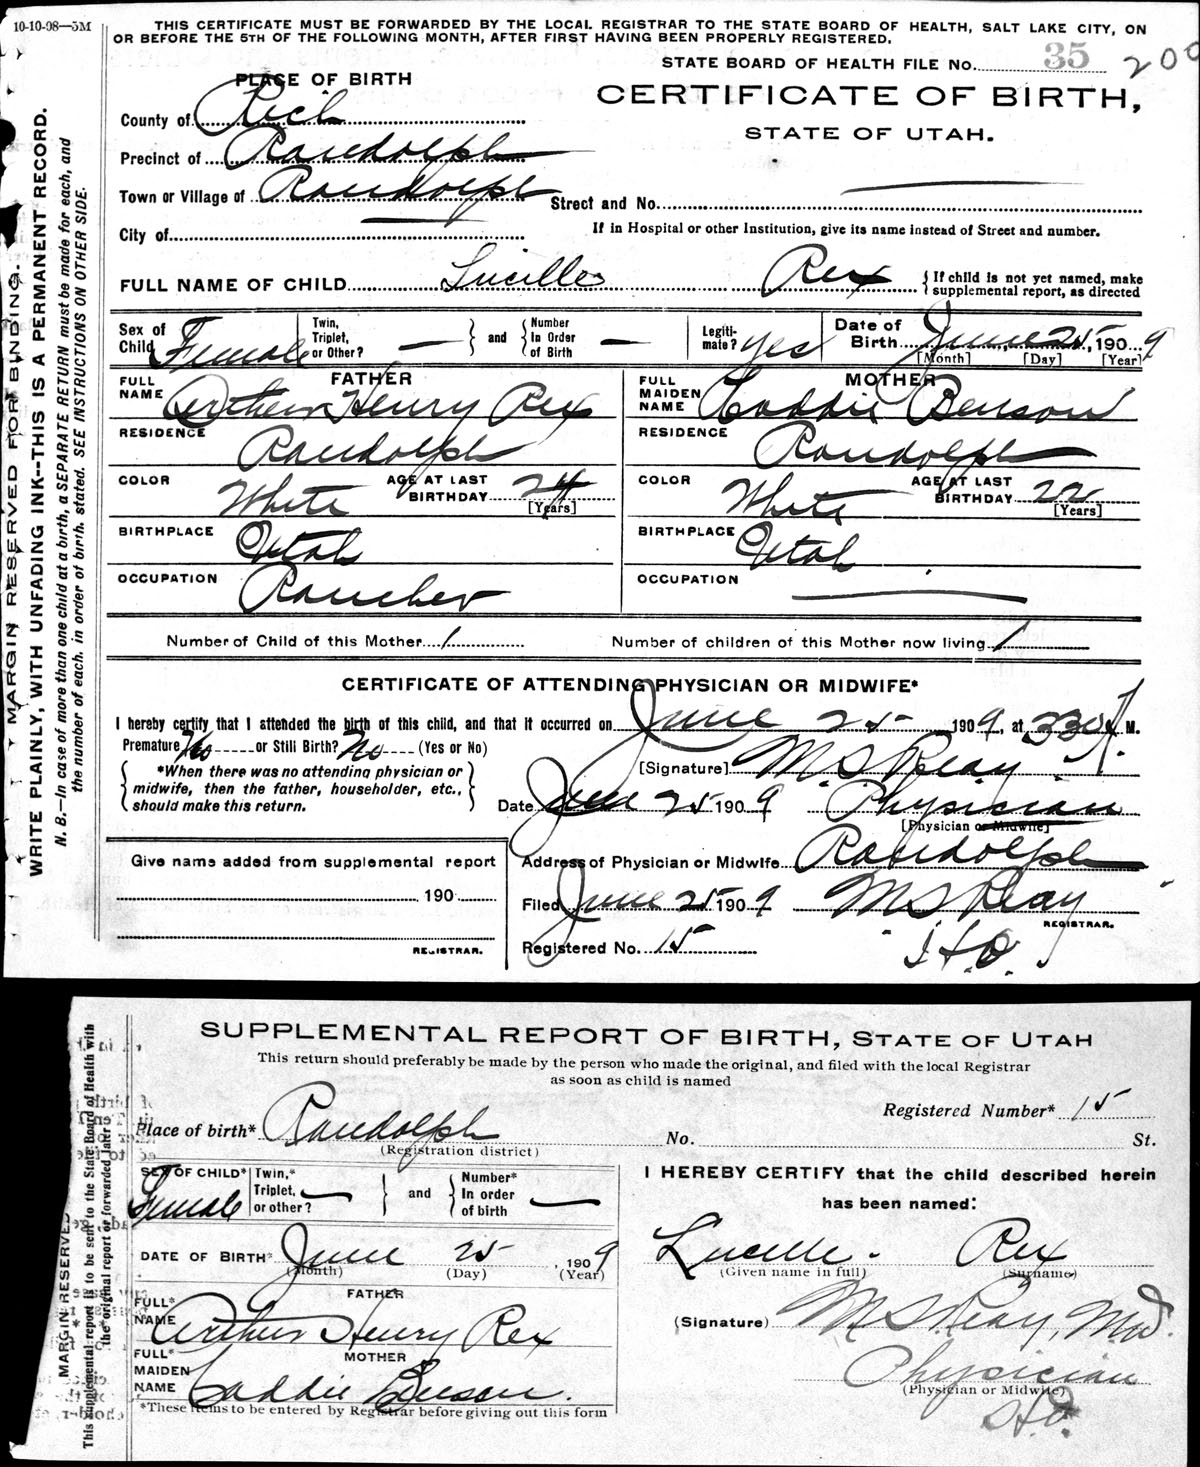 10-10-98—5M
THIS CERTIFICATE MUST BE FORWARDED BY THE LOCAL REGISTRAR TO THE STATE BOARD OF HEALTH, SALT LAKE CITY, ON
OR BEFORE THE 5TH OF THE FOLLOWING MONTH, AFTER FIRST HAVING BEEN PROPERLY REGISTERED.
STATE BOARD OF HEALTH FILE No. 35 200
PLACE OF BIRTH
CERTIFICATE OF BIRTH,
STATE OF UTAH.
County of Rich
Precinct of Randolph
Town or Village of Randolph
Street and No.
City of
If in Hospital or other Institution, give its name instead of Street and number.
FULL NAME OF CHILD Lucille Rex
If child is not yet named, make
supplemental report, as directed
Sex of Child Female
Twin, Triplet, or Other? — and Number In Order of Birth —
Legitimate? yes
Date of Birth June 25, 1909
[Month] [Day] [Year]
FATHER
FULL NAME Arthur Henry Rex
RESIDENCE Randolph
COLOR White AGE AT LAST BIRTHDAY 24 [Years]
BIRTHPLACE Utah
OCCUPATION Rancher
MOTHER
FULL MAIDEN NAME Caddie Benson
RESIDENCE Randolph
COLOR White AGE AT LAST BIRTHDAY 22 [Years]
BIRTHPLACE Utah
OCCUPATION —
Number of Child of this Mother 1 Number of children of this Mother now living 1
CERTIFICATE OF ATTENDING PHYSICIAN OR MIDWIFE*
I hereby certify that I attended the birth of this child, and that it occurred on June 25 1909, at 330 A M.
Premature No or Still Birth? No (Yes or No)
*When there was no attending physician or
midwife, then the father, householder, etc.,
should make this return.
[Signature] M S Reay
Date June 25 1909 Physician
[Physician or Midwife]
Address of Physician or Midwife Randolph
Give name added from supplemental report
190
REGISTRAR.
Filed June 25 1909 M S Reay
REGISTRAR.
Registered No. 15 H.O.
MARGIN RESERVED FOR BINDING.
WRITE PLAINLY, WITH UNFADING INK--THIS IS A PERMANENT RECORD.
N. B.—In case of more than one child at a birth, a SEPARATE RETURN must be made for each, and
the number of each, in order of birth, stated. SEE INSTRUCTIONS ON OTHER SIDE.
SUPPLEMENTAL REPORT OF BIRTH, STATE OF UTAH
This return should preferably be made by the person who made the original, and filed with the local Registrar
as soon as child is named
Registered Number* 15
Place of birth* Randolph No. St.
(Registration district)
SEX OF CHILD* Female
Twin,* Triplet, or other? — and Number* In order of birth —
DATE OF BIRTH* June 25, 1909
(Month) (Day) (Year)
FATHER
FULL* NAME Arthur Henry Rex
MOTHER
FULL* MAIDEN NAME Caddie Benson.
*These items to be entered by Registrar before giving out this form
I HEREBY CERTIFY that the child described herein
has been named:
Lucille Rex
(Given name in full) (Surname)
(Signature) M S Reay, M.D.
Physician
(Physician or Midwife)
H.O.
MARGIN RESERVED
This supplemental report is to be sent to the State Board of Health with
the original report or forwarded later